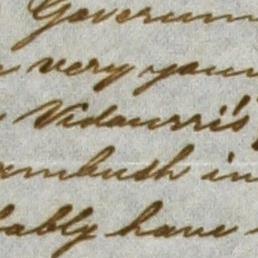 Governm
very your
Vidaurri's
ambush in
bably have